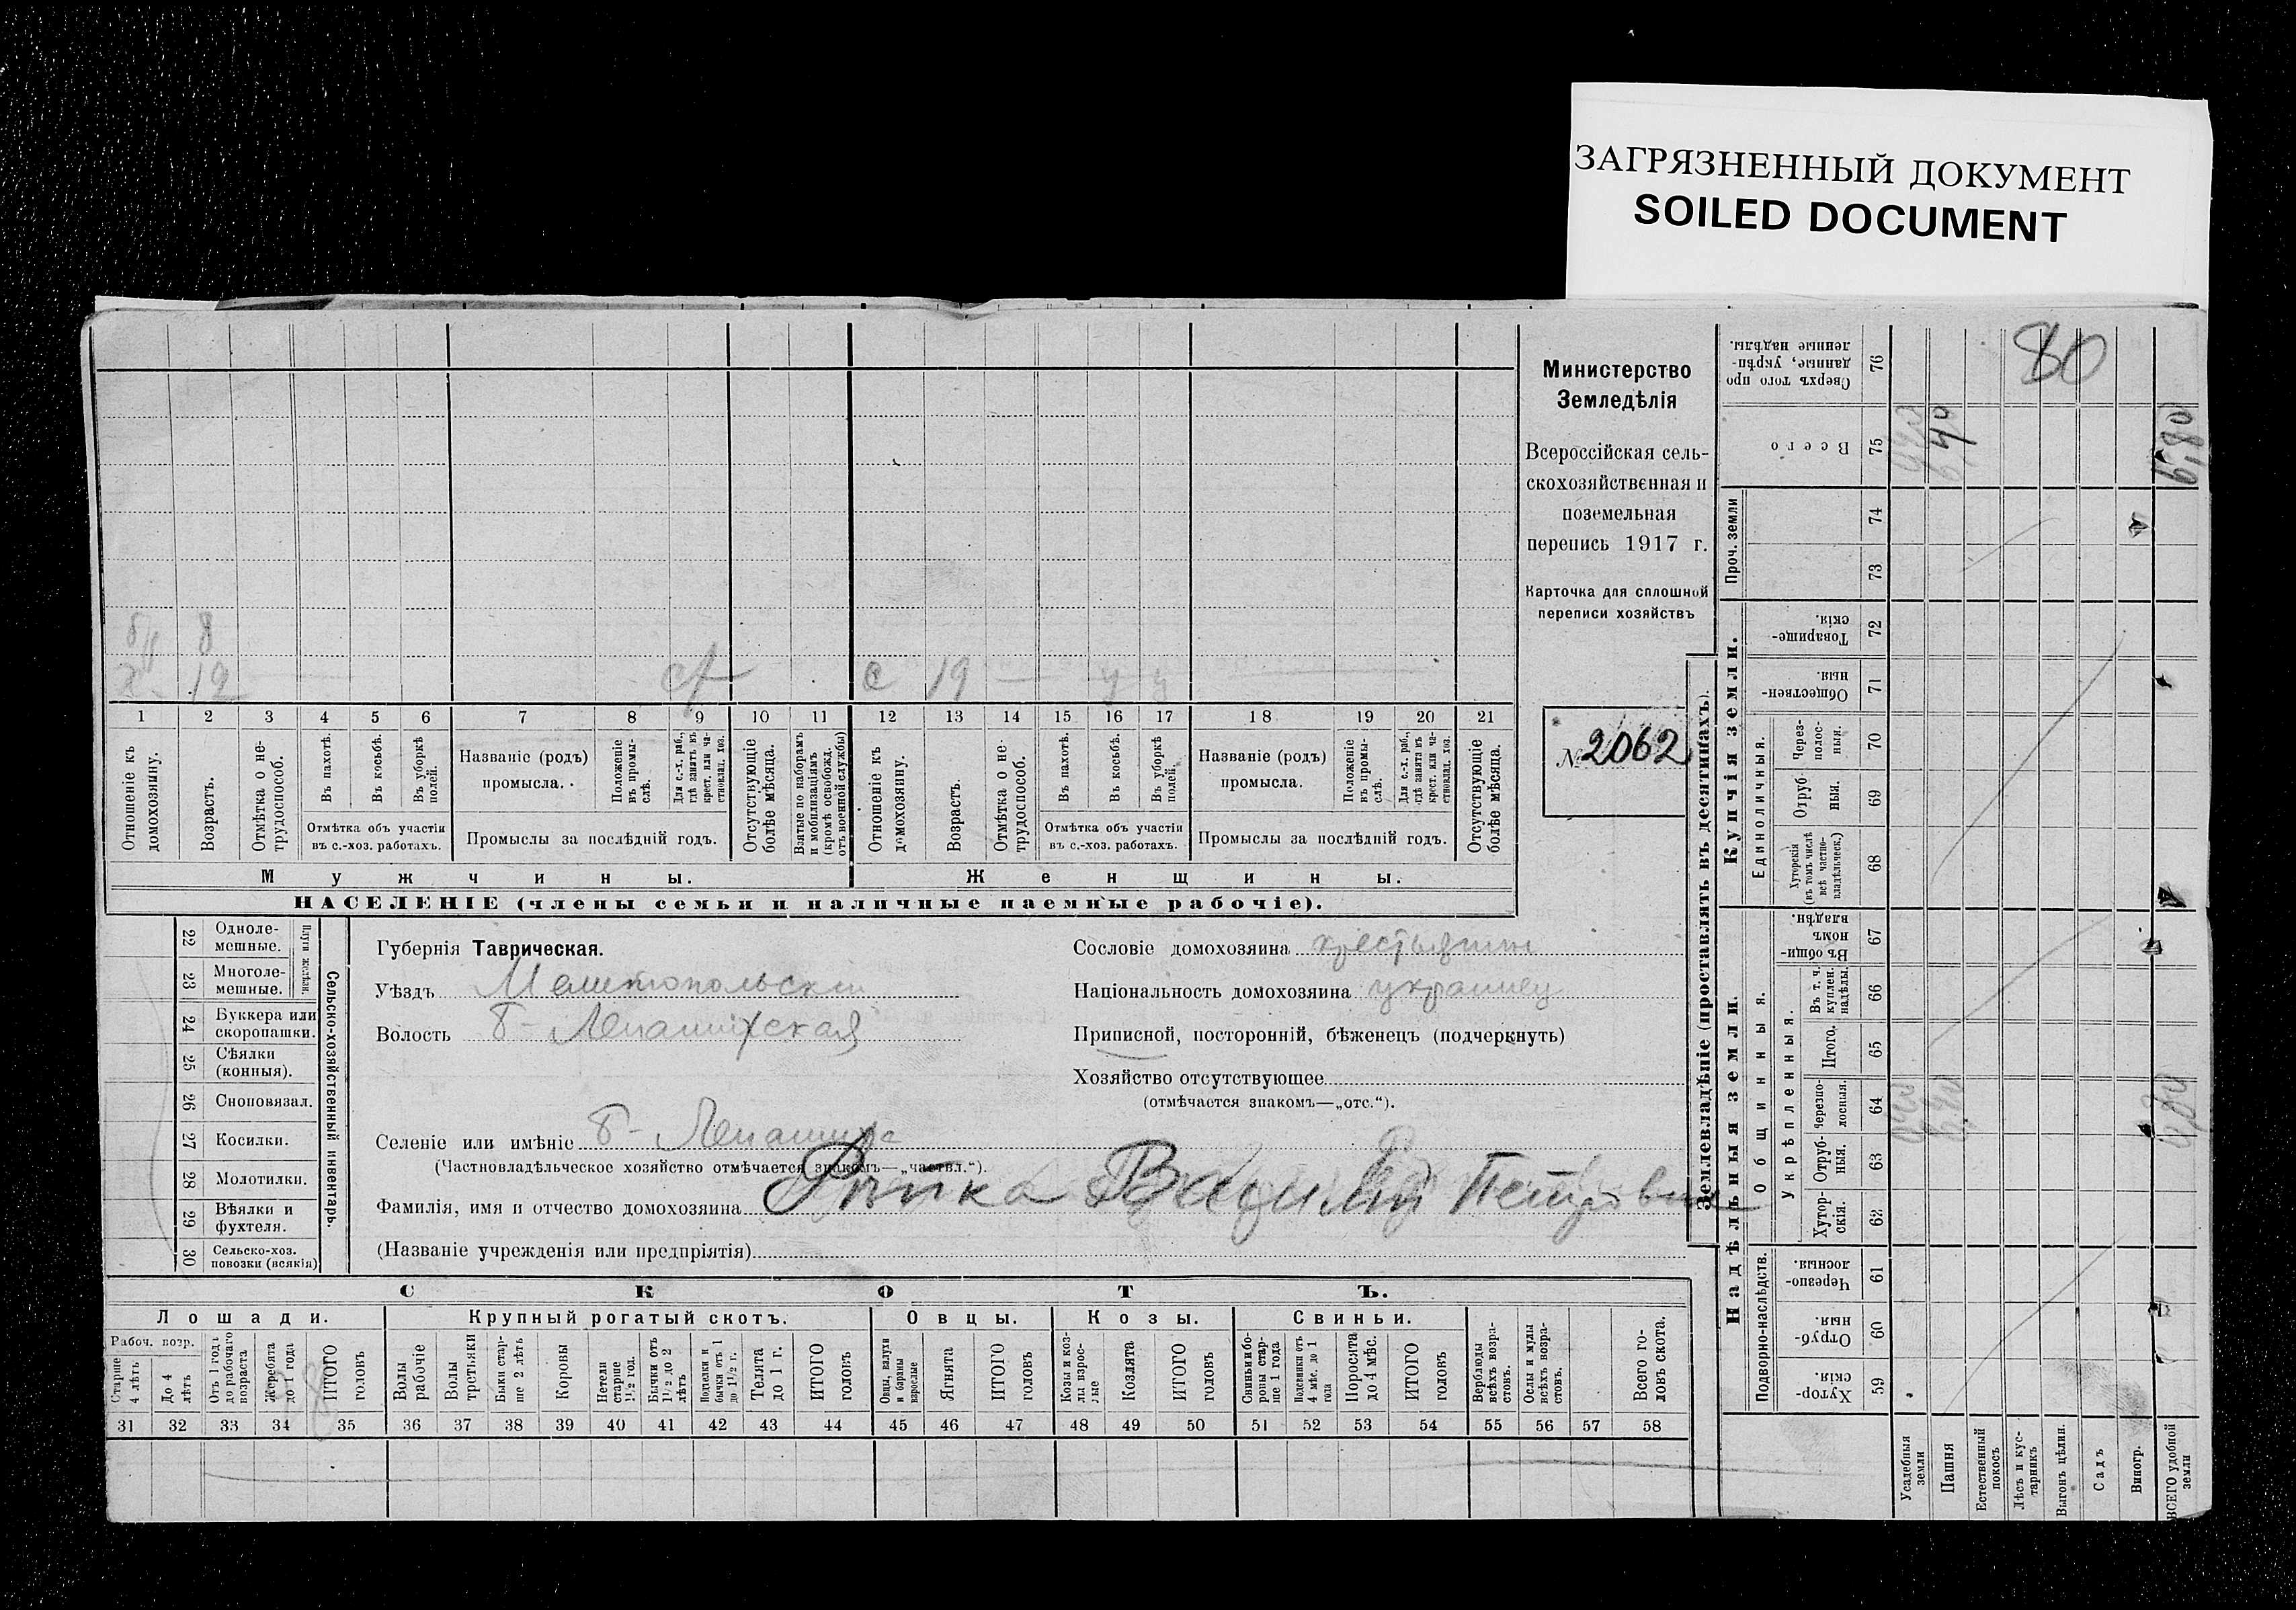 ЗАГРЯЗНЕННЫЙ ДОКУМЕНТ
SOILED DOCUMENT
80
Министерство
Земледѣлія
Всероссійская сель-
скохозяйственная и
поземельная
перепись 1917 г.
Карточка для сплошной
переписи хозяйствъ
№ 2062
8
12
с 19
1 2 3 4 5 6 7 8 9 10 11 12 13 14 15 16 17 18 19 20 21
Отношеніе къ домохозяину.
Возрастъ.
Отмѣтка о не-трудоспособ.
Въ пахотѣ.
Въ косьбѣ.
Въ уборкѣ полей.
Отмѣтка объ участіи
въ с.-хоз. работахъ.
Названіе (родъ)
промысла.
Положеніе въ промы-слѣ.
Для с.-х. раб., гдѣ занятъ въ крест. или ча-стновлад. хоз.
Промыслы за послѣдній годъ.
Отсутствующіе болѣе мѣсяца.
Взятые по наборамъ и мобилизаціямъ (кромѣ освобожд. отъ военной службы)
Отношеніе къ домохозяину.
Возрастъ.
Отмѣтка о не-трудоспособ.
Въ пахотѣ.
Въ косьбѣ.
Въ уборкѣ полей.
Отмѣтка объ участіи
въ с.-хоз. работахъ.
Названіе (родъ)
промысла.
Положеніе въ промы-слѣ.
Для с.-х. раб., гдѣ занята въ крест. или ча-стновлад. хоз.
Промыслы за послѣдній годъ.
Отсутствующіе болѣе мѣсяца.
Мужчины.
Женщины.
НАСЕЛЕНІЕ (члены семьи и наличные наемные рабочіе).
Сельско-хозяйственный инвентарь.
Плуги желѣзн.
22 Одноле-мешные.
23 Многоле-мешные.
24 Буккера или скоропашки.
25 Сѣялки (конныя).
26 Сноповязал.
27 Косилки.
28 Молотилки.
29 Вѣялки и фухтеля.
30 Сельско-хоз. повозки (всякія)
Губернія Таврическая.
Уѣздъ Мелитопольскій
Волость Б-Лепатихская
Селеніе или имѣніе Б-Лепатиха
(Частновладѣльческое хозяйство отмѣчается знакомъ—„частвл.“).
Фамилія, имя и отчество домохозяина Василій Петровичъ
(Названіе учрежденія или предпріятія)
Сословіе домохозяина крестьянин
Національность домохозяина украинец
Приписной, посторонній, бѣженецъ (подчеркнуть)
Хозяйство отсутствующее
(отмѣчается знакомъ—„отс.“).
СКОТЪ.
Лошади.
Крупный рогатый скотъ.
Овцы.
Козы.
Свиньи.
Рабоч. возр.
Старше 4 лѣтъ
До 4 лѣтъ
Отъ 1 года до рабочаго возраста
Жеребята до 1 года
ИТОГО головъ
Волы рабочіе
Волы третьяки
Быки стар-ше 2 лѣтъ
Коровы
Нетели старше 1½ год.
Бычки отъ 1½ до 2 лѣтъ
Подтелки и бычки отъ 1 до 1½ г.
Телята до 1 г.
ИТОГО головъ
Овцы, валухи и бараны взрослые
Ягнята
ИТОГО головъ
Козы и коз-лы взрос-лые
Козлята
ИТОГО головъ
Свиньи и бо-ровы стар-ше 1 года
Подсвинки отъ 4 мѣс. до 1 года
Поросята до 4 мѣс.
ИТОГО головъ
Верблюды всѣхъ возра-стовъ.
Ослы и мулы всѣхъ возра-стовъ.
Всего го-ловъ скота.
31 32 33 34 35 36 37 38 39 40 41 42 43 44 45 46 47 48 49 50 51 52 53 54 55 56 57 58
Землевладѣніе (проставлять въ десятинахъ).
Надѣльныя земли.
Купчія земли.
Проч. земли
Подворно-наслѣдств.
Общинныя.
Укрѣпленныя.
Единоличныя.
Сверхъ того про-данные, укрѣп-ленные надѣлы. 76
Всего 75
74
73
Товарище-скія. 72
Обществен-ныя. 71
Через-полос-ныя. 70
Отруб-ныя. 69
Хуторскія (въ томъ числѣ всѣ частно-владѣльческ.) 68
Въ общин-номъ владѣн. 67
Въ т. ч. куплен. надѣлы. 66
Итого. 65
Черезпо-лосныя. 64
Отруб-ныя. 63
Хутор-скія. 62
Черезпо-лосныя. 61
Отруб-ныя. 60
Хутор-скія. 59
6,80
Усадебныя земли
Пашня
Естественный покосъ
Лѣсъ и кус-тарникъ
Выгонъ цѣлин.
Садъ
Виногр.
ВСЕГО удобной земли